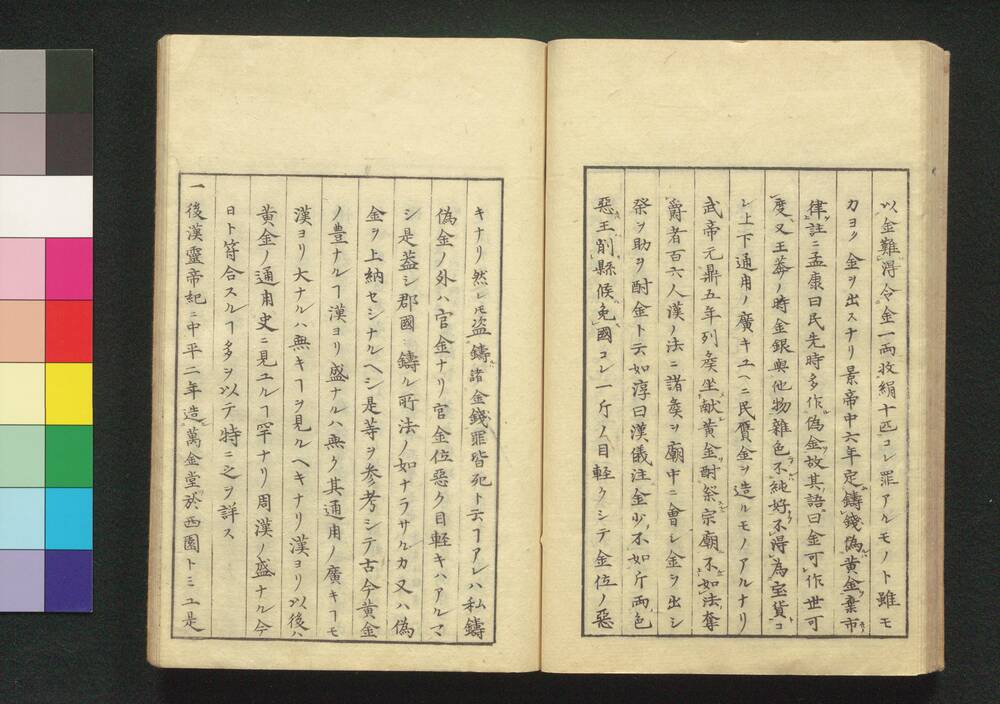 以金難得令金一両收絹十匹コレ罪アルモノト雖モ
カヨク金ヲ出スナリ景帝中六年定鋳錢偽黄金棄市
律註ニ孟康曰民先時多作偽金故其語曰金可作世可
度又王莽ノ時金銀與他物雜色不純好不得為宝貨コ
レ上下通用ノ廣キユヘニ民贋金ヲ造ルモノアルナリ
武帝元鼎五年列矦坐献黄金酎祭宗廟不如法奪
爵者百六人漢ノ法ニ諸矦ヲ廟中ニ會シ金ヲ出シ
祭ヲ助ヲ酎金ト云如淳曰漢儀注金少不如斤両色
惡王削縣候免國コレ一斤ノ目軽クシテ金位ノ惡
キナリ然レモ盗鑄諸金錢罪皆死ト云ヿアレハ私鑄
偽金ノ外ハ官金ナリ官金位惡ク目軽キハアルマ
シ是葢シ郡國ニ鑄ル所法ノ如ナラサルカ又ハ偽
金ヲ上納セシナルヘシ是等ヲ参考シテ古今黄金
ノ豊ナルヿ漢ヨリ盛ナルハ無ク其通用ノ廣キヿモ
漢ヨリ大ナルハ無キヿヲ見ルヘキナリ漢ヨリ以後ハ
黄金ノ通用史ニ見ユルヿ罕ナリ周漢ノ盛ナル今
日ト符合スルヿ多ヲ以テ特ニ之ヲ詳ス
一後漢靈帝紀ニ中平二年造萬金堂於西園トミユ是